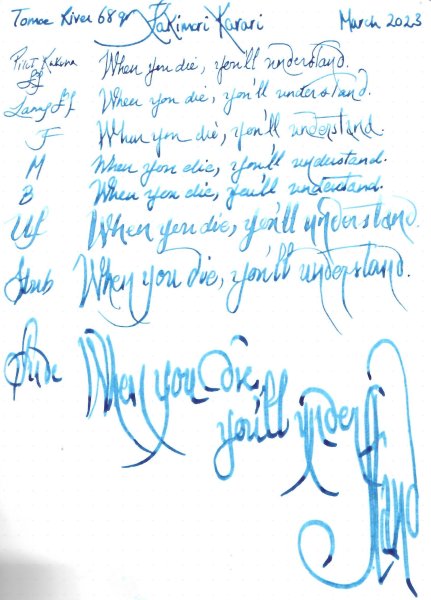 Tomoe River 68g Kakimori Karari March 2023
Pilot Kakuno EF When you die, you'll understand.
Lamy EF When you die, you'll understand.
F When you die, you'll understand.
M When you die, you'll understand.
B When you die, you'll understand.
Uf When you die, you'll understand.
Stub When you die, you'll understand.
When you die,
you'll under
stand